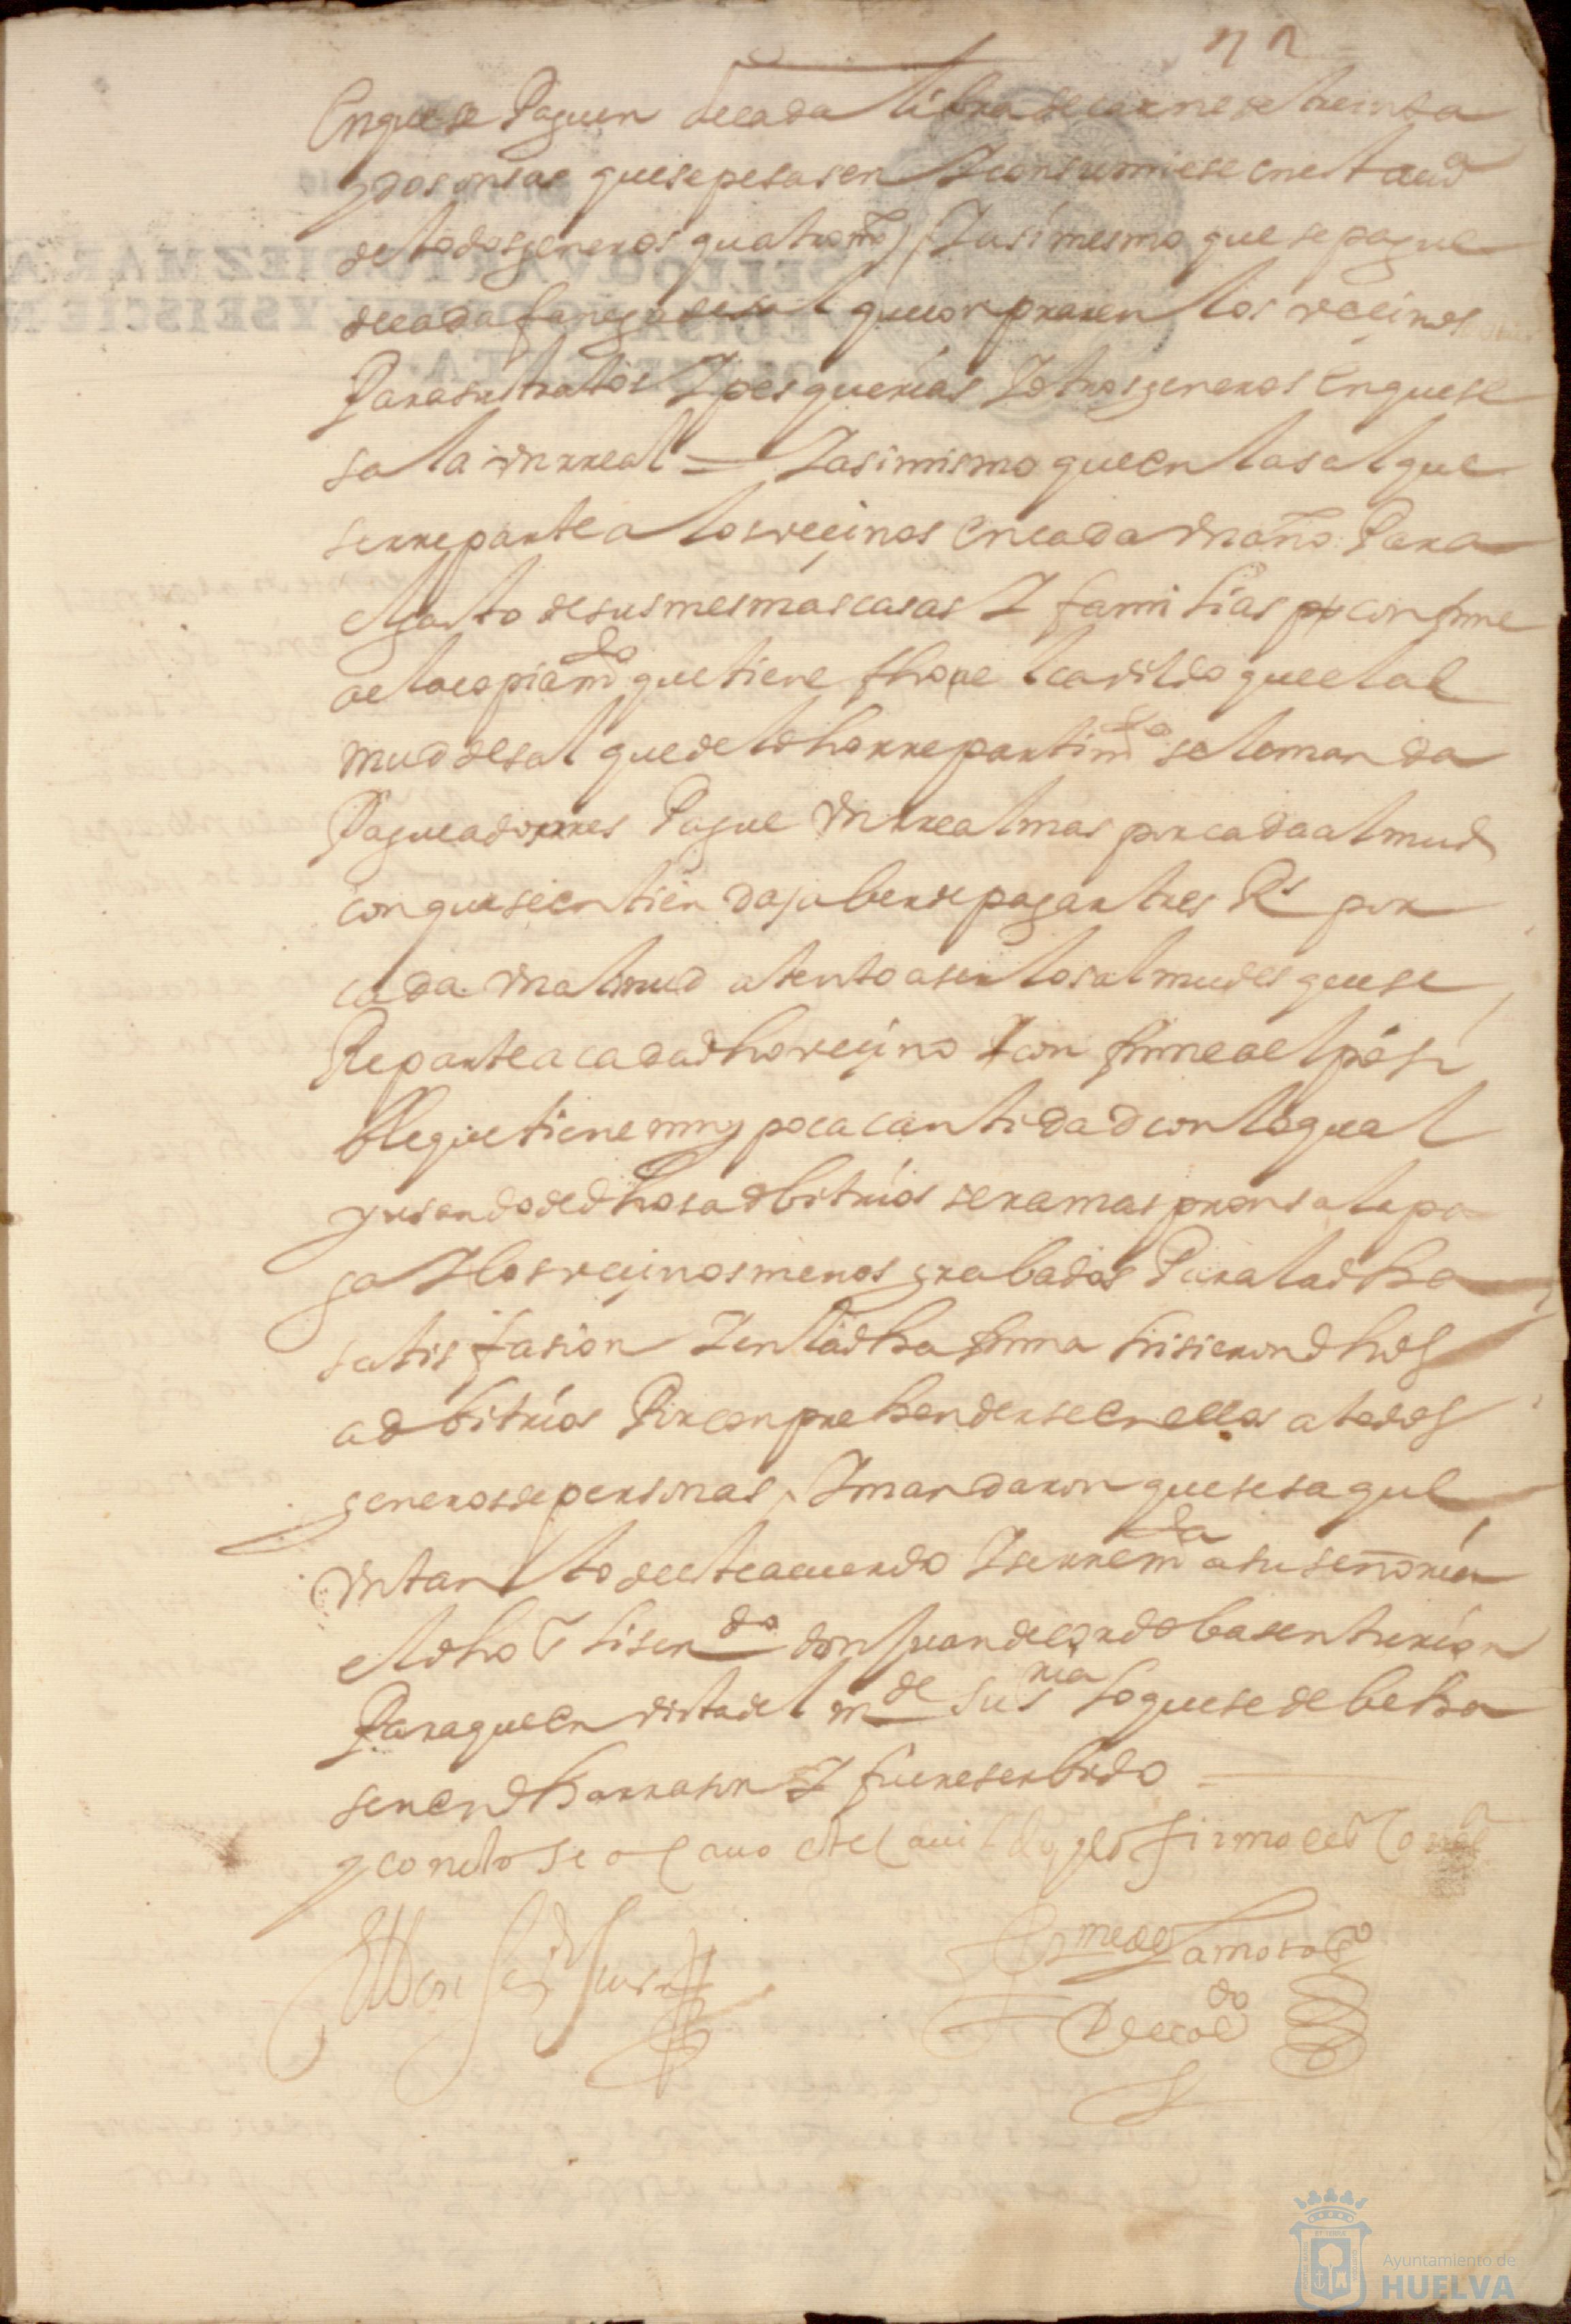 En que se Paguen de cada libra de carne de treinta
y dos onsas que se pesasen Y consumiese en esta uª
de todos generos quatro mrs / Y asi mesmo que se pague
de cada fanega de sal que conpraren los veçinos
Para sus tratos Y pesquerias Y otros generos En que se
sala vn rreal = Y asi mismo que en la sal que
se rreparte a los veçinos En cada vn año Para
el gasto de sus mesmas casas Y familias conforme
a el acopiamto que tiene fho el cavildo que el al
mud de sal que de el dho rrepartimto se le manda
Pague a dos rres Pague vn rreal mas por cada almud
con que se entienda aber de pagar tres Rs por
cada vn almud atento a ser los almudes que se
Reparte a cada dho veçino Y conforme a el posi
ble que tiene muy poca cantidad con lo qual
y usando de dhos adbitrios sera mas pronta la pa
ga Y los veçinos menos grabados Para la dha
satisfasion Y en la dha forma hisieron dhos
adbitrios Por conprehenderse en ellos a todos
generos de personas, Y mandaron que se saque
vn tanto de este acuerdo Y se rremda a su señoria
el dho sr lisendo don Juan de cordoba senturion
Para que en vista de el mde su sria lo que se debe ha
ser en dha rrason Y fuere serbido
y con esto se acauo este cauildo y lo firmo